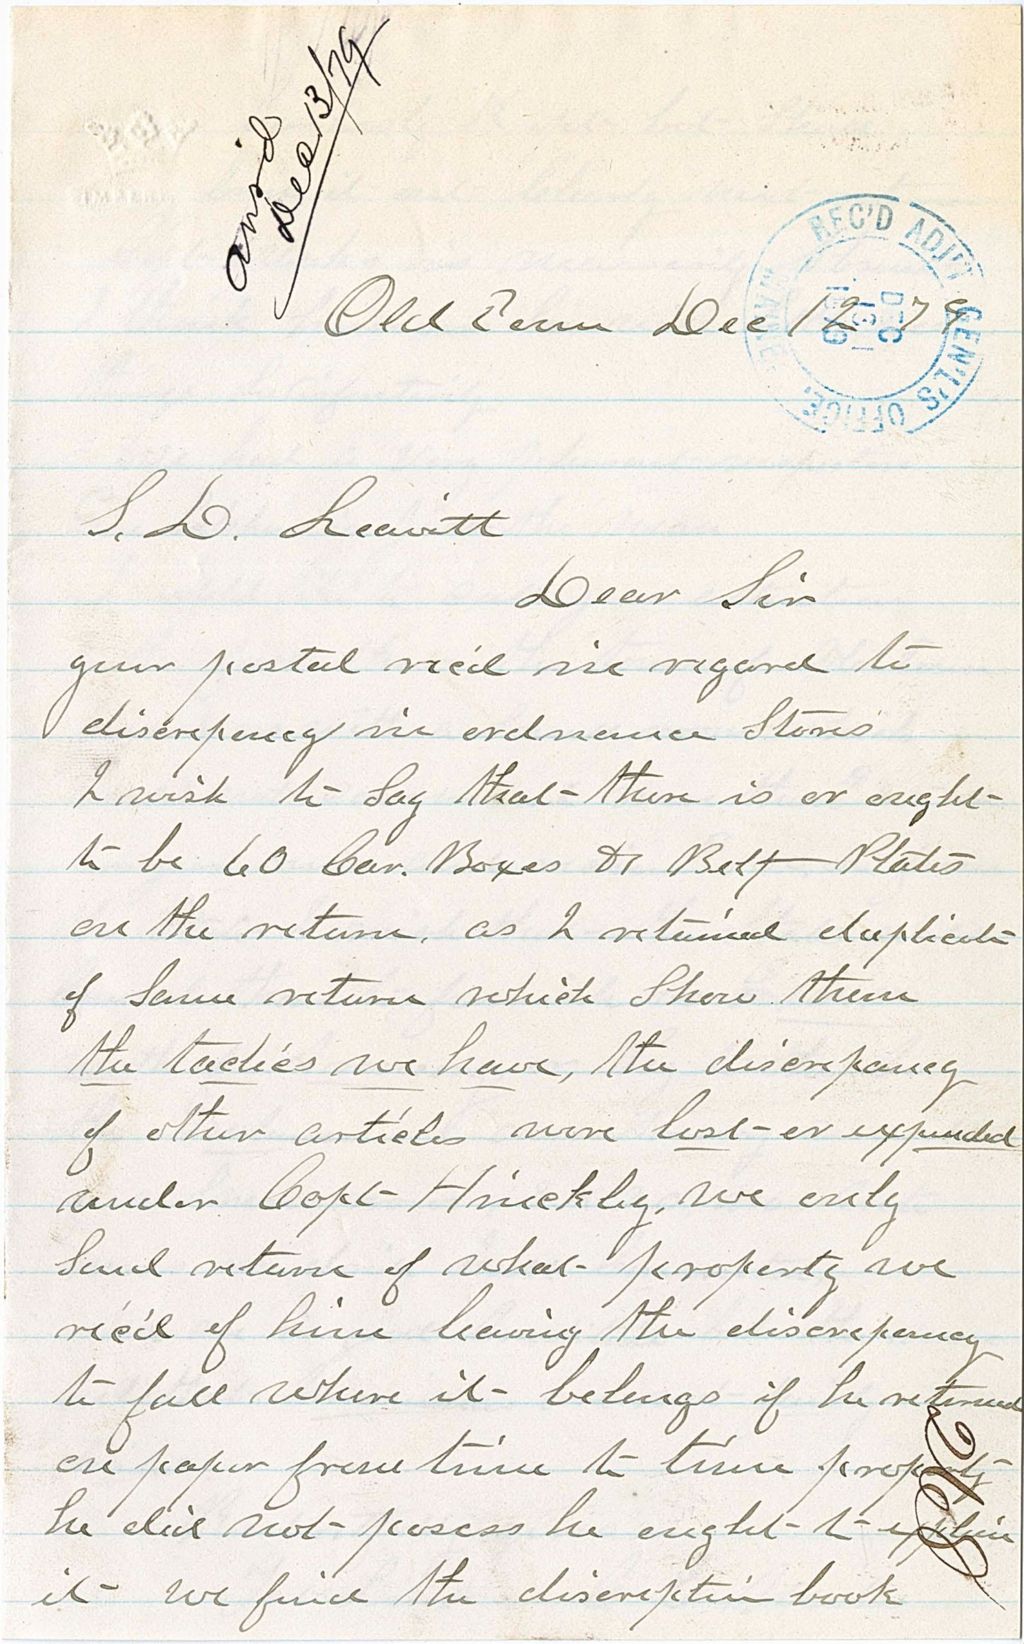 ans'd
Dec 13/79
REC'D ADJ'T GEN'L'S OFFICE,
DEC
13
1879
Old Town Dec 12 79
S. D. Leavitt
Dear Sir
your postal rec'd in regard to
discrepency in ordnance Stores
I wish to Say that there is or ought
to be 60 Car. Boxes & Belt Plates
on the return. as I retained duplicate
of Same return which Show them
the tactics we have, the discrepancy
of other articles were lost or expended
under Capt Hinckley, we only
Send return of what property we
rec'd of him leaving the discrepancy
to fall where it belongs if he returned
on paper from time to time property
he did not posess he ought to explain
it we find the discreptin book